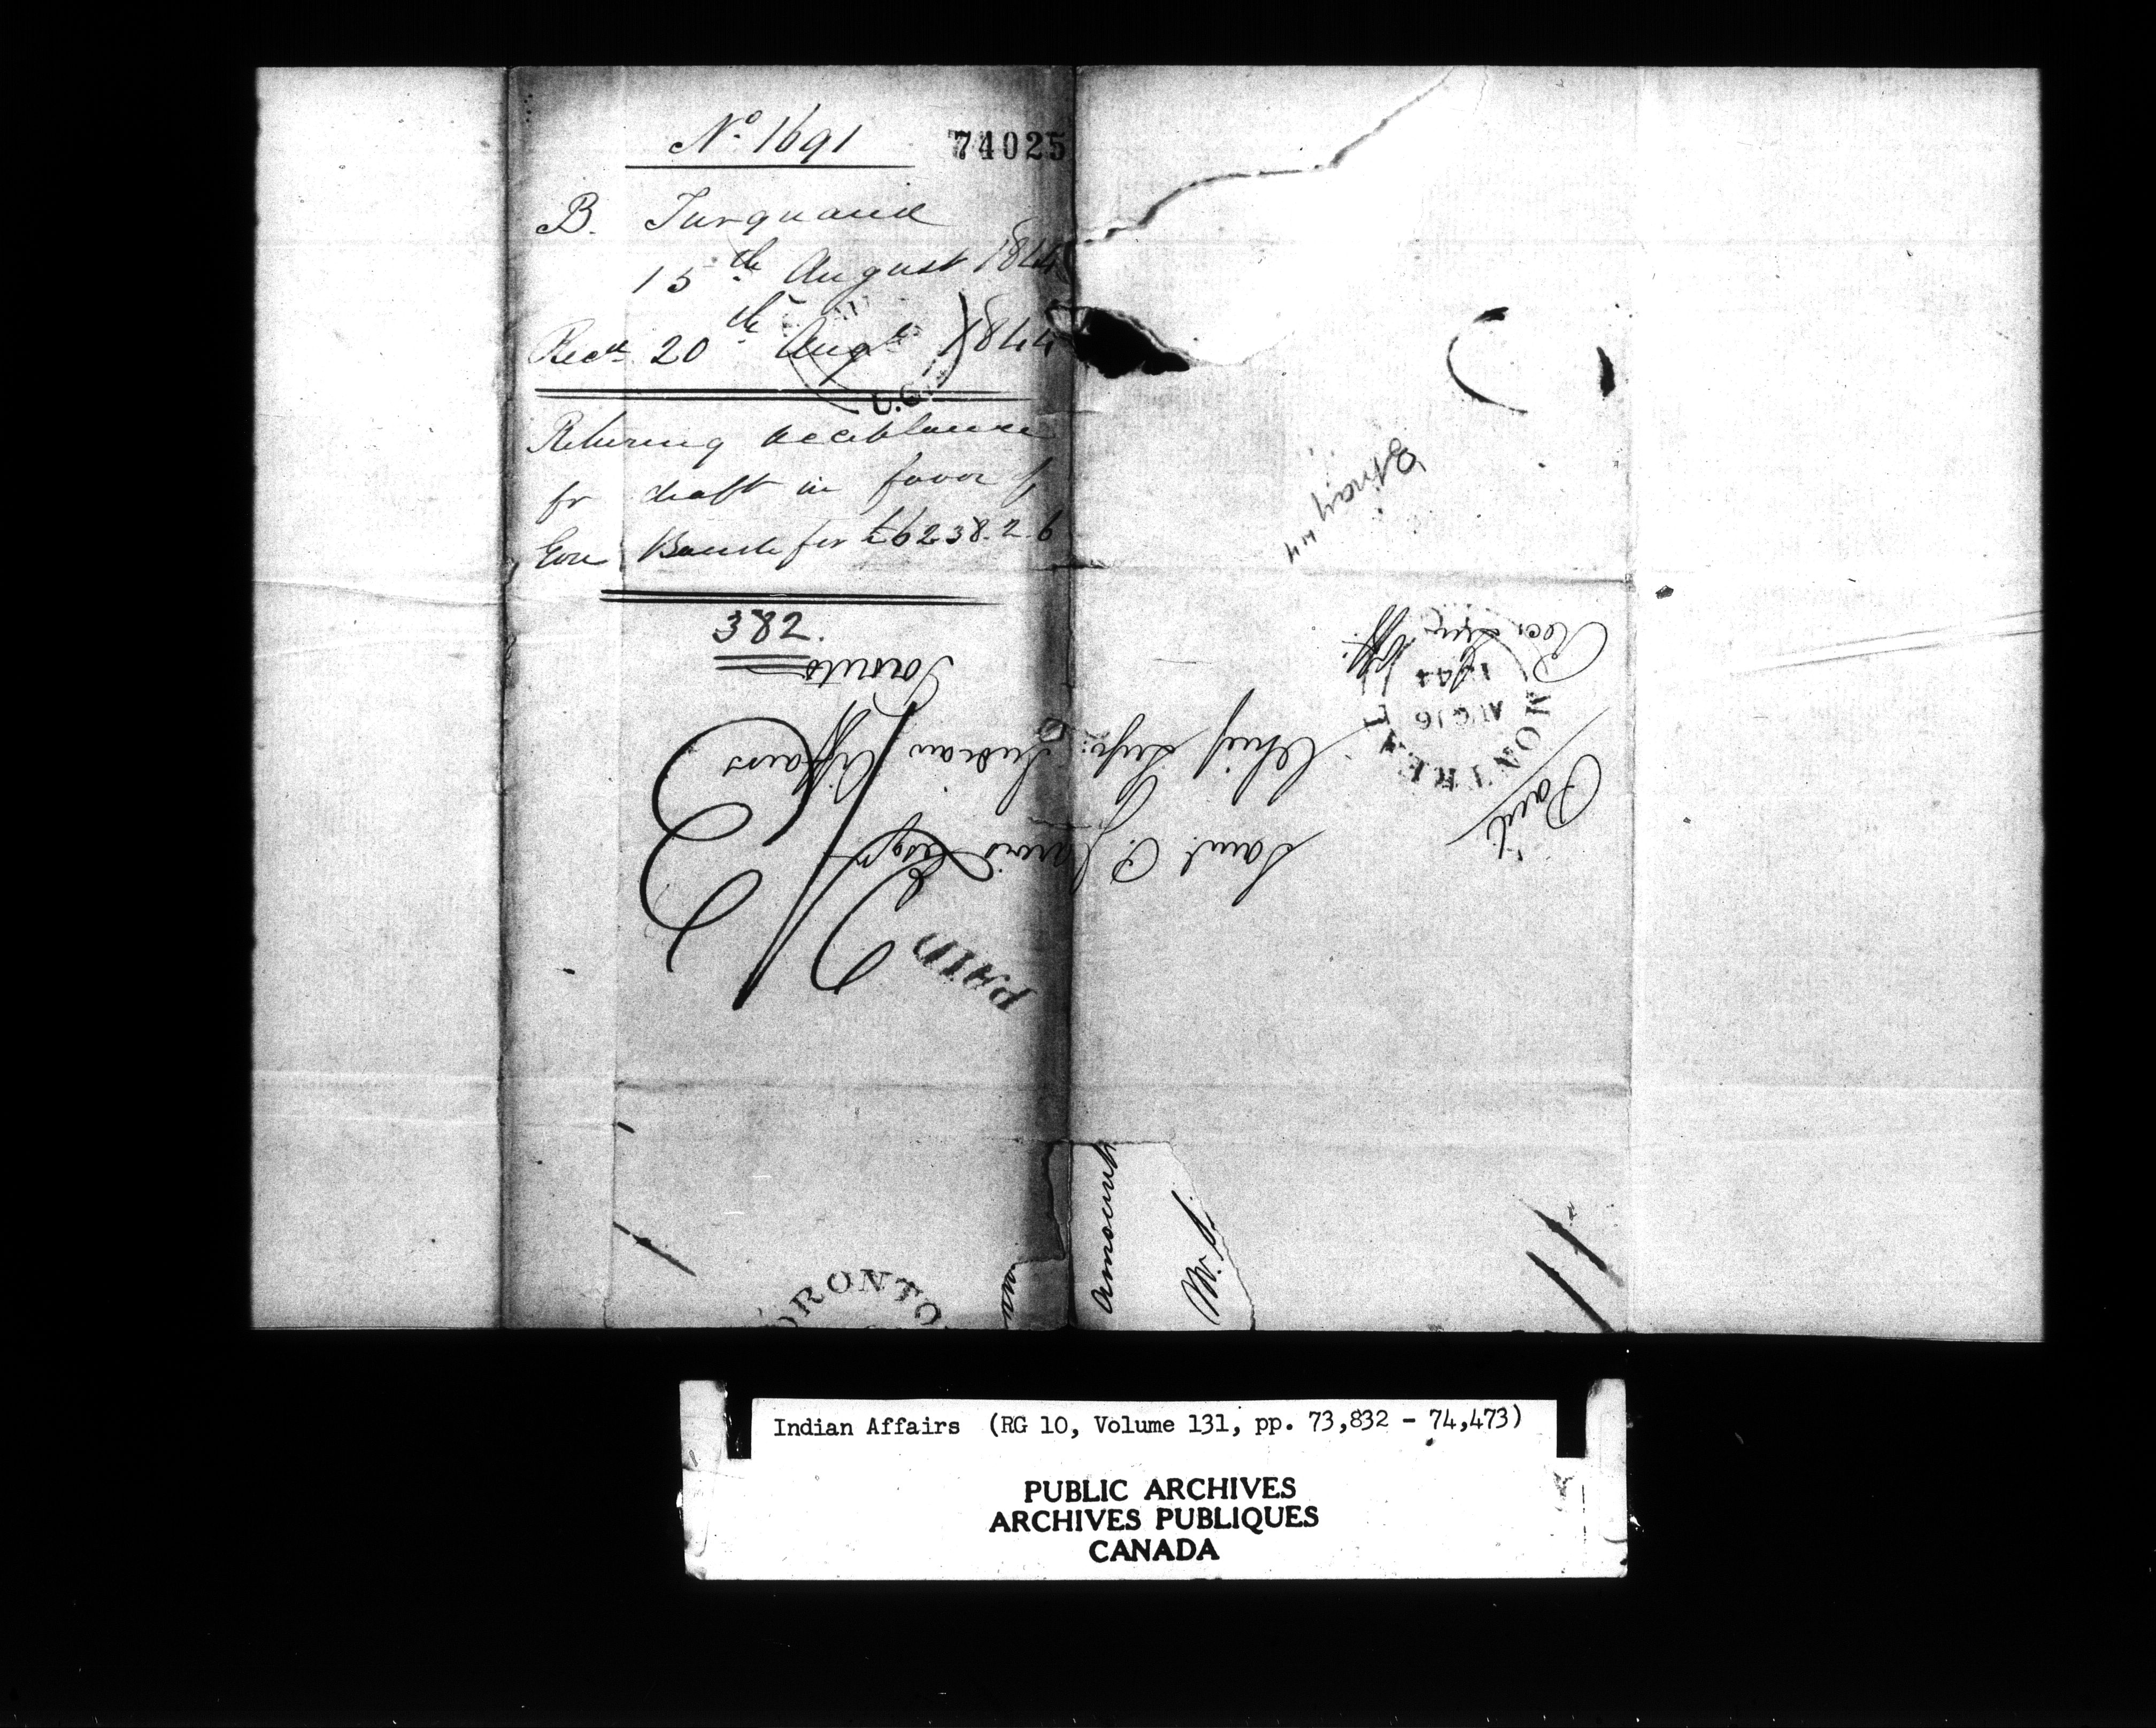 No. 1691
74025
B. Turquand
15th August 1844
Recd. 20th Augt. 1844
U.C.
Returning acceptance
for draft in favor of
Gore Bank for £6238.2.6
382.
Toronto
Chief Supt. Indian Affairs
Saml. P. Jarvis Esqr.
PAID
Paid
MONTREAL
AUG 16
1844
TORONTO
amount
Indian Affairs (RG 10, Volume 131, pp. 73,832 - 74,473)
PUBLIC ARCHIVES
ARCHIVES PUBLIQUES
CANADA